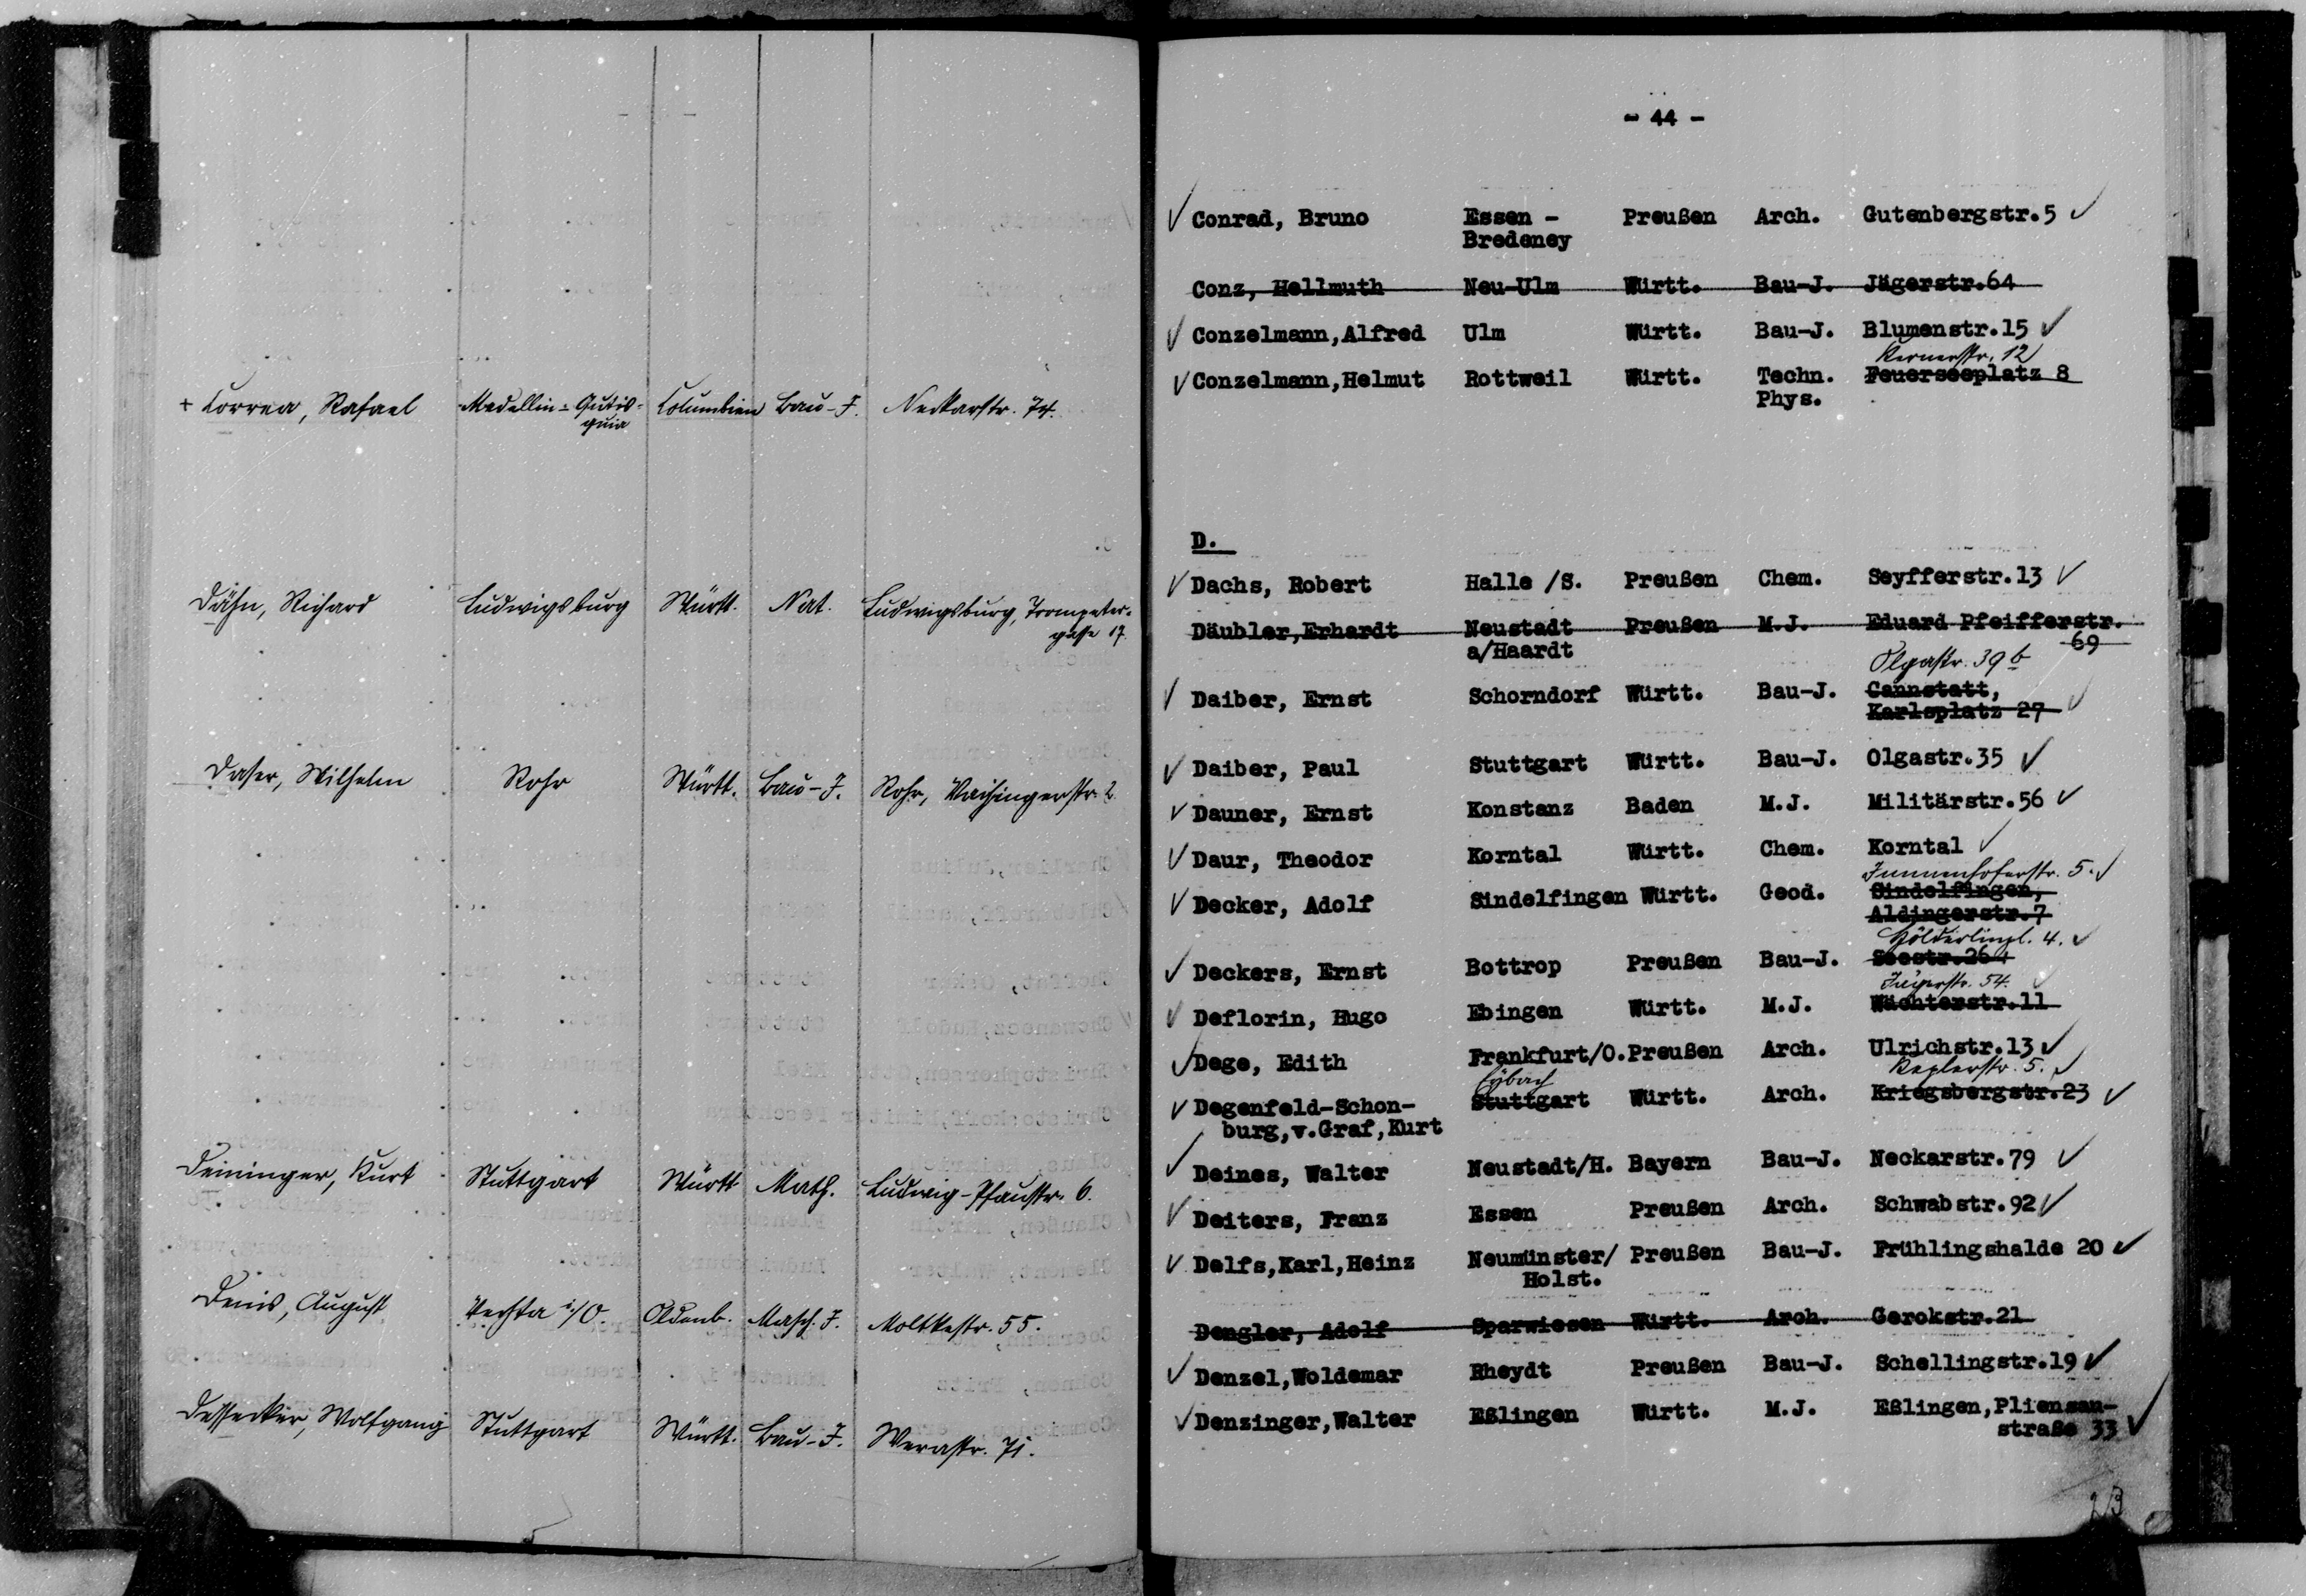 + Correa, Rafael Medellin = Columbien Bau-J. Neckarstr. 74.
Dähn, Richard Ludwigsburg Württ. Nat. Ludwigsburg, Trompeter-
gasse 17
Daser, Wilhelm Rohr Württ. Bau-J. Rohr, Vaihingerstr. 2
Deininger, Kurt Stuttgart Württ. Math. Ludwig-Pfaustr. 6.
Denis, August Vechta i/O. Oldenb. Masch. J. Moltkestr. 55.
Dessecker, Wolfgang Stuttgart Württ. Bau-J. Werastr. 71.
- 44 -
Conrad, Bruno Essen - Preußen Arch. Gutenbergstr.5
Bredeney
Conz, Hellmuth Neu-Ulm Württ. Bau-J. Jägerstr.64
Conzelmann,Alfred Ulm Württ. Bau-J. Blumenstr.15
Kernerstr. 12
Conzelmann,Helmut Rottweil Württ. Techn. Feuerseeplatz 8
Phys.
D.
Dachs, Robert Halle /S. Preußen Chem. Seyfferstr.13
Däubler,Erhardt Neustadt Preußen M.J. Eduard Pfeifferstr.
a/Haardt 69
Olgastr. 39 b
Daiber, Ernst Schorndorf Württ. Bau-J. Cannstatt,
Karlsplatz 27
Daiber, Paul Stuttgart Württ. Bau-J. Olgastr.35
Dauner, Ernst Konstanz Baden M.J. Militärstr.56
Daur, Theodor Korntal Württ. Chem. Korntal
Immenhoferstr. 5.
Decker, Adolf Sindelfingen Württ. Geod. Sindelfingen,
Aldingerstr.7
Hölderlinpl. 4.
Deckers, Ernst Bottrop Preußen Bau-J. Seestr.26
Jägerstr. 54.
Deflorin, Hugo Ebingen Württ. M.J. Wächterstr.11
Dege, Edith Frankfurt/O. Preußen Arch. Ulrichstr.13
Eybach Keplerstr. 5.
Degenfeld-Schon- Stuttgart Württ. Arch. Kriegsbergstr.23
burg,v.Graf,Kurt
Deines, Walter Neustadt/H. Bayern Bau-J. Neckarstr.79
Deiters, Franz Essen Preußen Arch. Schwabstr.92
Delfs,Karl,Heinz Neumünster/ Preußen Bau-J. Frühlingshalde 20
Holst.
Dengler, Adolf Sparwiesen Württ. Arch. Gerokstr.21
Denzel,Woldemar Rheydt Preußen Bau-J. Schellingstr.19
Denzinger,Walter Eßlingen Württ. M.J. Eßlingen,Pliensau-
straße 33
23